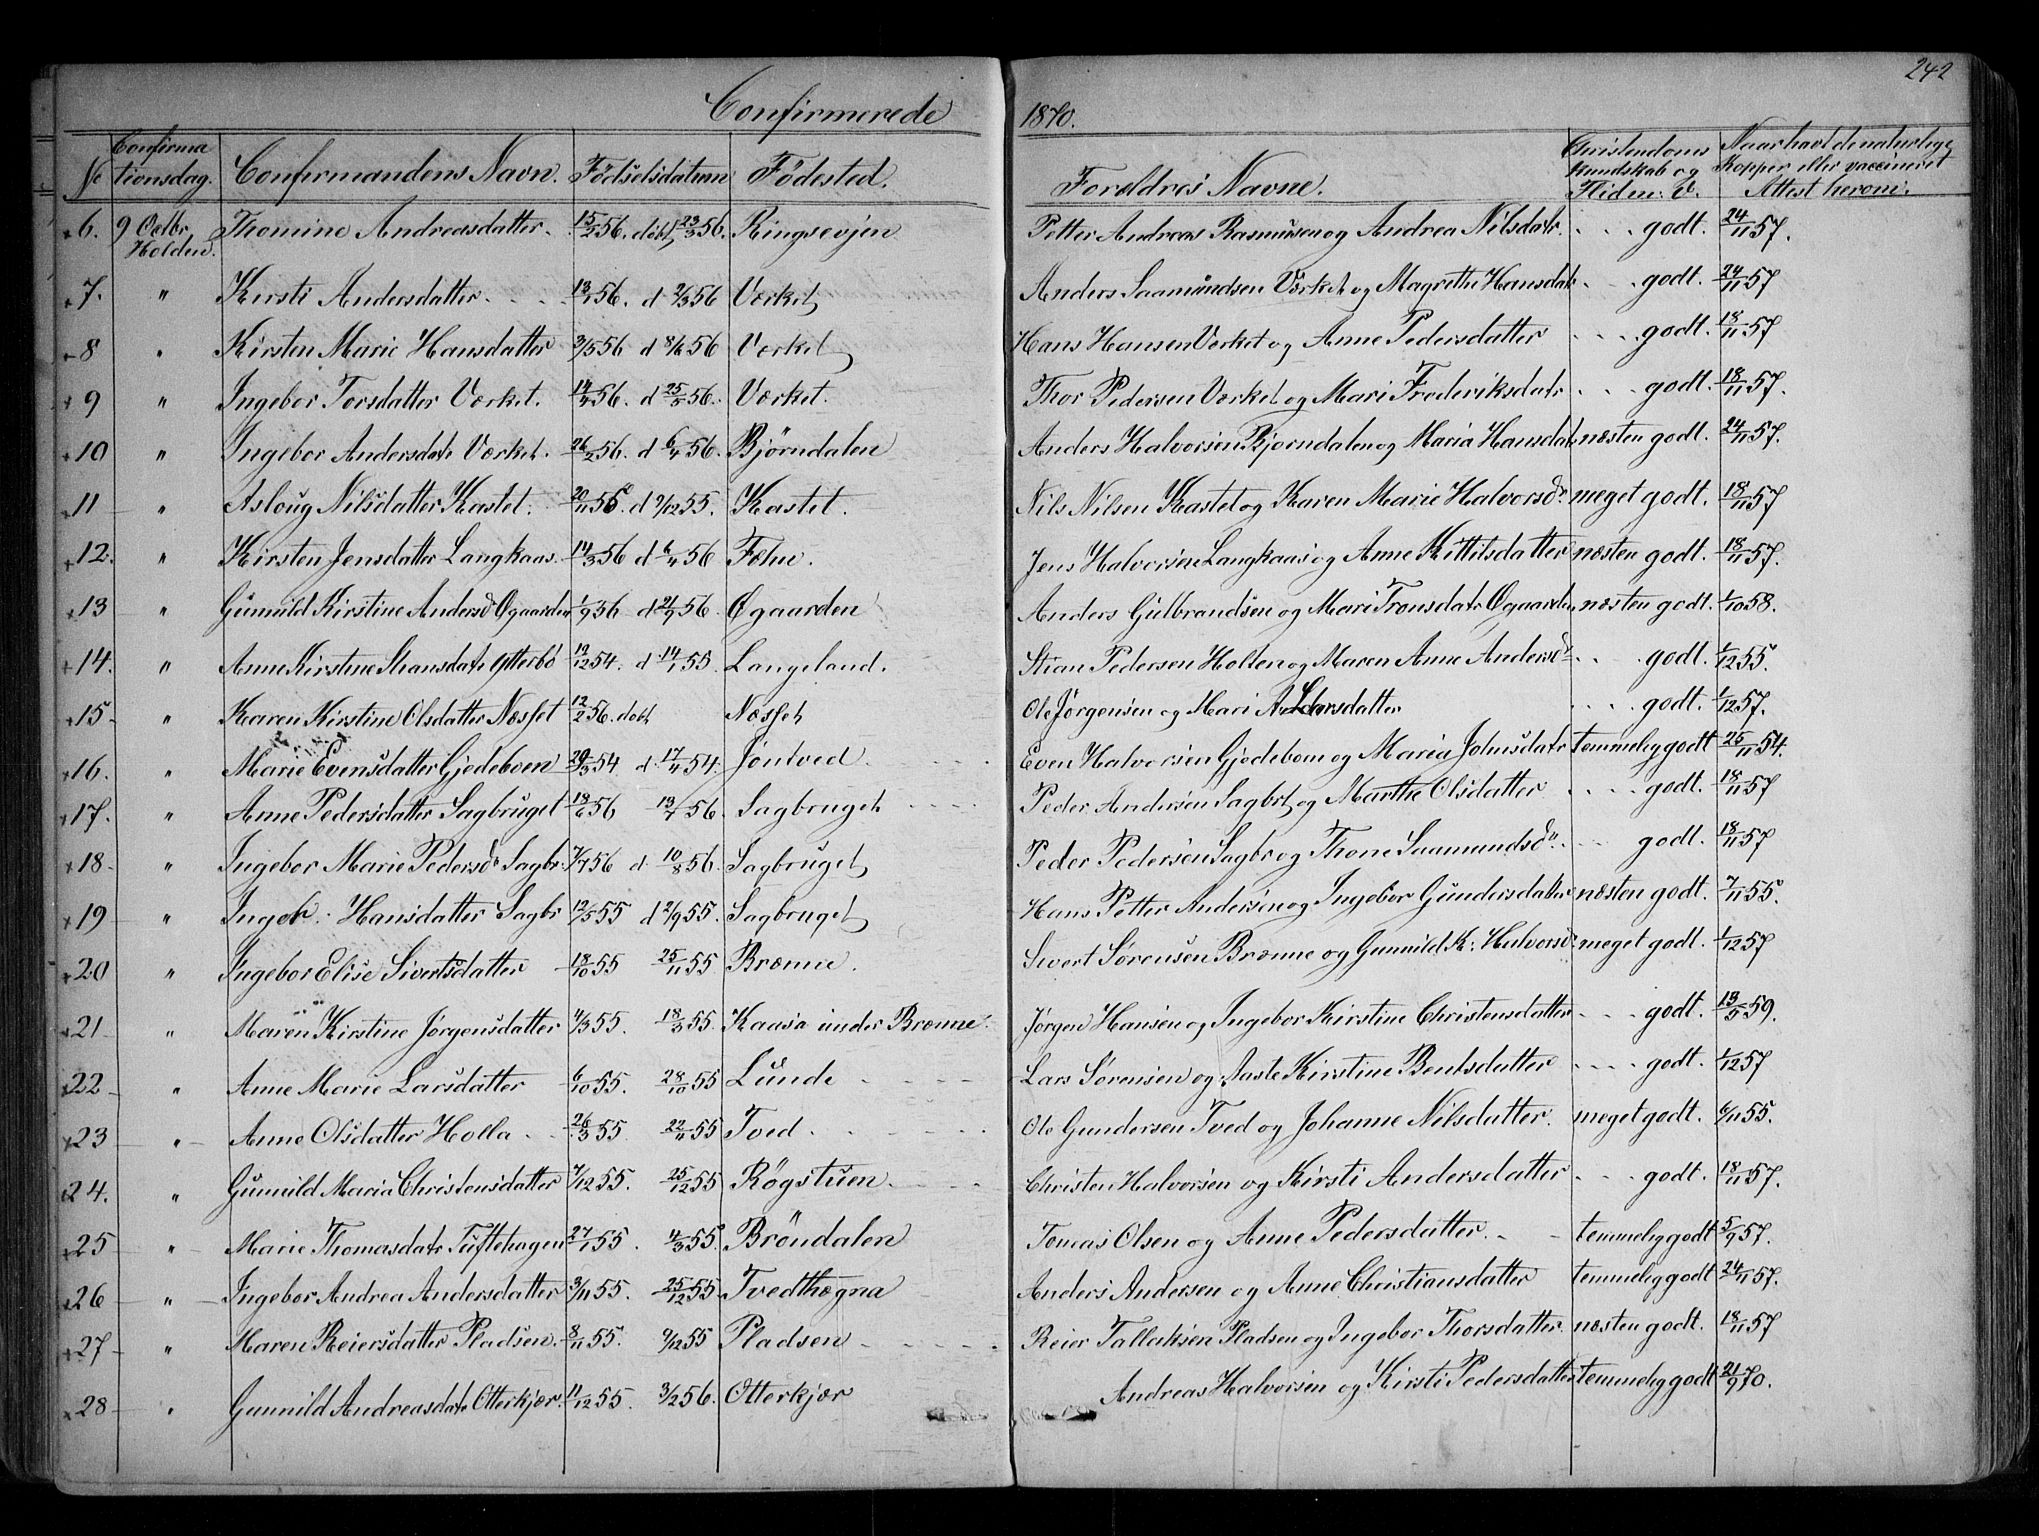 242
Confirmerede 1870.
No Confirmationsdag. Confirmandens Navn. Födselsdatum Födested. Forældres Navne. Christendoms Kundskab og Fliden: V. Naar havt de naturlige Kopper eller vaccineret Attest herom:
6. 9 Octbr Holden. Thomine Andreasdatter. 15/2 56. döbt 23/3 56. Ringsevjen Petter Andreas Rasmusen og Andrea Nilsdatr. . . . godt. 24/11 57.
7. " Kirsti Andersdatter. 13/1 56. d 2/3 56 Værket Anders Saamundsen Værket og Magrethe Hansdatr . . godt. 24/11 57
8 " Kirsten Marie Hansdatter 3/5 56 d 8/6 56 Værket Hans Hansen Værket og Anne Pedersdatter . . . godt. 18/11 57
9 " Ingebor Torsdatter Værket. 14/4 56. d 25/5 56. Værket. Thor Pedersen Værket og Mari Frederiksdatr . . . godt. 18/11 57.
10 " Ingebor Andersdatr Værket. 26/2 56. d 6/4 56. Björndalen Anders Halvorsen Bjorndalen og Maria Hansdatr næsten godt. 24/11 57.
11 " Asloug Nilsdatter Kastet. 20/11 55. d 9/12 55. Kastet. Nils Nilsen Kastet og Karen Marie Halvorsdr meget godt. 18/11 57
12. " Kirsten Jensdatter Langkaas. 14/3 56 d 6/4 56 Fæhn. Jens Halvorsen Langkaas og Anne Kittilsdatter næsten godt. 18/11 57.
13 " Gunnild Kirstine Andersdr Ögaarden 1/9 56 d 21/9 56. Ögaarden Anders Gulbrandsen og Mari Tronsdatr Ögaarden næsten godt. 1/10 58.
14. " Anne Kirstine Stiansdatr Ytterbö 13/12 54. d. 14/1 55. Langeland. Stian Pedersen Holten og Maren Anne Andersdr . . . godt. 1/12 55.
15 " Karen Kirstine Olsdatter Næsset 12/2 56. döbt Næsset Ole Jörgensen og Mari Larsdatter . . . . godt. 1/12 57.
16. " Marie Evensdatter Gjedeboen 29/3 54 d. 17/4 54. Jöntved. Even Halvorsen Gjedeboen og Maria Johnsdatr temmelig godt 25/11 54.
17. " Anne Pedersdatter Sagbruget 18/6 56 13/7 56. Sagbruget Peder Andersen Sagbrt og Marthe Olsdatter . . . . godt. 18/11 57
18. " Ingebor Marie Pedersdr Sagbr. 7/7 56 d 10/8 56. Sagbruget Peder Pedersen Sagbr og Thone Saamundsdr . . godt. 18/11 57
19 " Ingebr: Hansdatter Sagbr 12/5 55 d 2/9 55. Sagbruget Hans Petter Andersen og Ingebor Gundersdatter næsten godt. 7/11 55.
20 " Ingebor Elise Sivertsdatter 18/10 55 25/11 55 Brænne. Sivert Sörensen Brænne og Gunnild K: Halvorsdr meget godt. 1/12 57
21 " Maren Kirstine Jörgensdatter 4/3 55. 18/3 55. Kaasa under Brænne. Jörgen Hansen og Ingebor Kirstine Christensdatter . . . godt. 13/5 59.
22 " Anne Marie Larsdatter 6/10 55. 28/10 55 Lunde Lars Sörensen og Aaste Kirstine Bentsdatter . . . . godt. 1/12 57
23 " Anne Olsdatter Holla 26/3 55. 22/4 55 Tved. Ole Gundersen Tved og Johanne Nilsdatter. meget godt. 6/11 55.
24. " Gunnild Maria Christensdatter 7/12 55. 25/12 55 Rögstuen. Christen Halvorsen og Kirsti Andersdatter . . . godt. 18/11 57.
25 " Marie Thomasdatr Tuftehagen 27/1 55. 4/3 55. Bröndalen Tomas Olsen og Anne Pedersdatter. temmelig godt 5/9 57.
26 " Ingebor Andrea Andersdatter 3/11 55. 25/12 55 Tvedthægna Anders Andersen og Anne Christiansdatter temmelig godt 24/11 57.
27 " Maren Reiersdatter Pladsen. 8/11 55. 9/12 55 Pladsen Reier Tallaksen Pladsen og Ingebor Thorsdatter. næsten godt. 18/11 57
28 " Gunnild Andreasdatr Otterkjær. 11/12 55. 3/2 56. Otterkjær Andreas Halvorsen og Kirsti Pedersdatter temmelig godt 21/9 70.